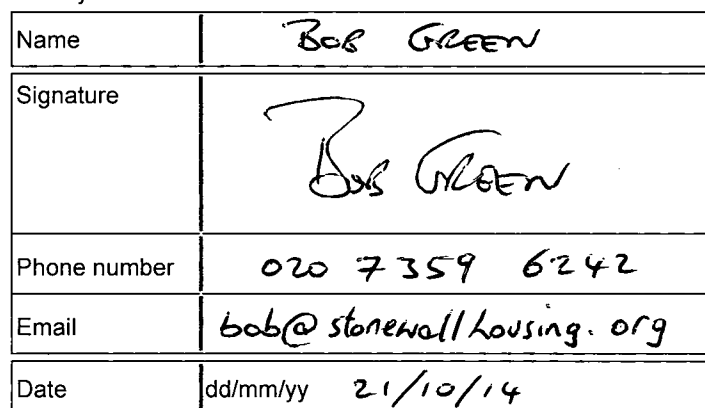 Name BOB GREEN
Signature BOB GREEN
Phone number 020 7359 6242
Email bob@stonewallhousing.org
Date dd/mm/yy 21/10/14